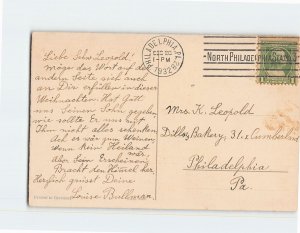 Liebe Schw. Leopold!
möge das Wort auf der
andern Seite sich auch
an Dir erfüllen in dieser
Weihnachten. Hat Gott
uns Seinen Sohn gegeben,
wie sollte Er uns mit
Ihm nicht alles schenken.
Ach es wär ohne Wonne
Wenn kein Heiland wär,
Aber Sein Erscheinung
Macht den Himmel her
Herzlich grüsst Deine
Louise Bullman
PHILADELPHIA, PA.
DEC 20
1-PM
1932
NORTH PHILADELPHIA
Mrs. K. Leopold
Dilks Bakery, 31 & Cumberland
Philadelphia
Pa.